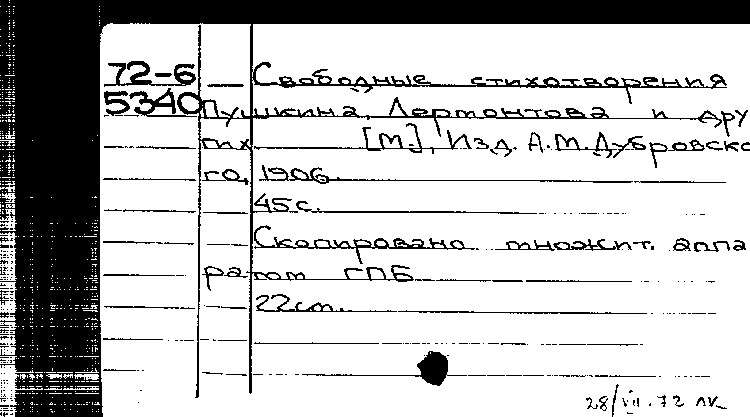 72-6 — Свободные стихотворения
5340 Пушкина, Лермонтова и дру
гих [М.], Изд. А.М.Дубровско
го, 1906.
45с.
Скопировано множит. аппа
ратом ГПБ
22см.
28/VII.72 лк